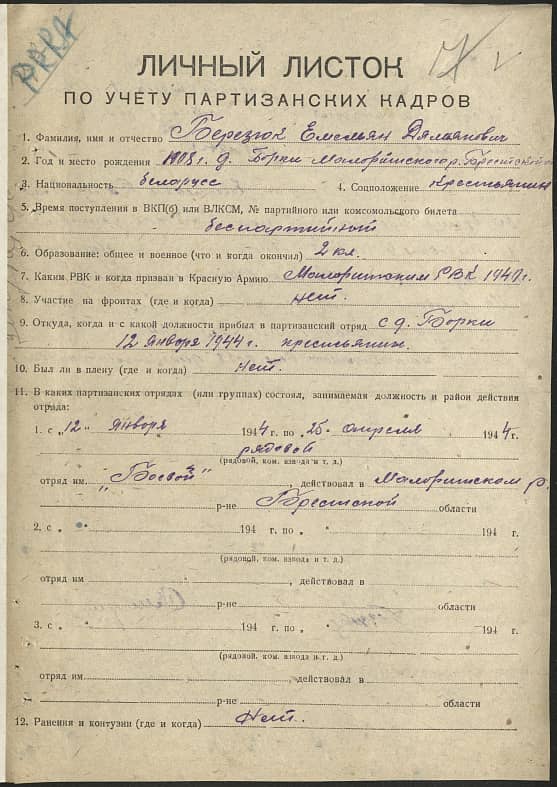 ЛИЧНЫЙ ЛИСТОК
ПО УЧЕТУ ПАРТИЗАНСКИХ КАДРОВ
1. Фамилия, имя и отчество Березюк Емельян
2. Год и место рождения 1908 г. д. Борки Малоритского р. Брестской
3. Национальность белорусс 4. Соцположение крестьянин
5. Время поступления в ВКП(б) или ВЛКСМ, № партийного или комсомольского билета
беспартийный
6. Образование: общее и военное (что и когда окончил) 2 кл.
7. Каким РВК и когда призван в Красную Армию Малоритским РВК
8. Участие на фронтах (где и когда) нет.
9. Откуда, когда и с какой должности прибыл в партизанский отряд с д. Борки
12 января 1944 г. крестьянин.
10. Был ли в плену (где и когда) нет.
11. В каких партизанских отрядах (или группах) состоял, занимаемая должность и район действия
отряда:
1. с „12" января 1944 г. по „25 апреля 1944 г.
рядовой
(рядовой, ком. взвода и т. д.)
отряд им. „Боевой", действовал в Малоритском р.
р-не Брестской области
2. с „ " 194 г. по „ " 194 г.
(рядовой, ком. взвода и т. д.)
отряд им , действовал в
р-не области
3. с „ " 194 г. по „ " 194 г.
(рядовой, ком. взвода и т. д.)
отряд им , действовал в
р-не области
12. Ранения и контузии (где и когда) Нет.